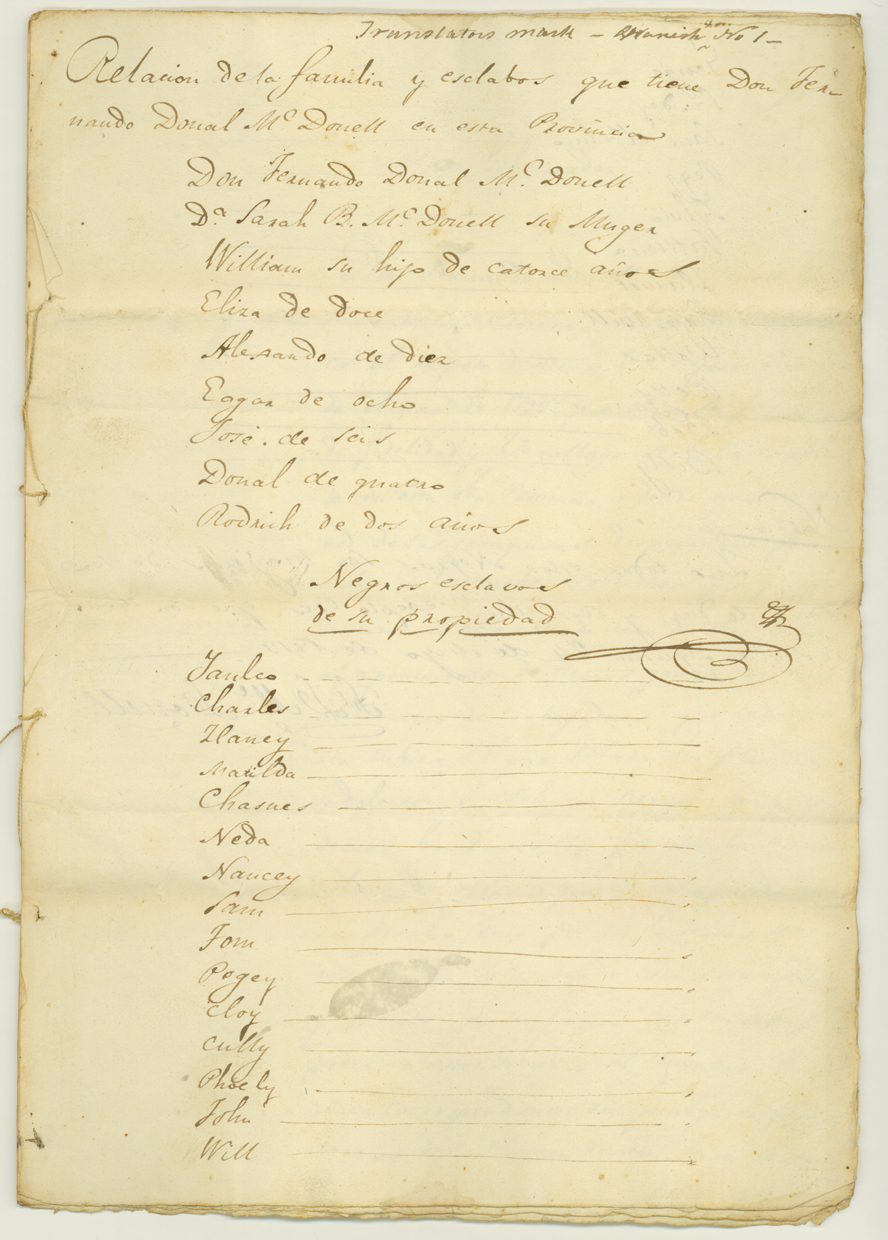 Translators mark – Spanish No 1 –
Relacion de la familia y esclabos que tiene Don Fer
nando Donal Mc Donell en esta Provincia
Don Fernando Donal Mc Donell
Da Sarah B. Mc Donell su Muger
William su hijo de catorce años
Eliza de doce
Alexandro de diez
Eogan de ocho
José de seis
Donal de quatro
Rodrich de dos años
Negros esclavos
de su propiedad
Charles
Matilda
Neda
Nancey
Sam
Tom
Pegey
Cloy
Cully
Phoeby
John
Will